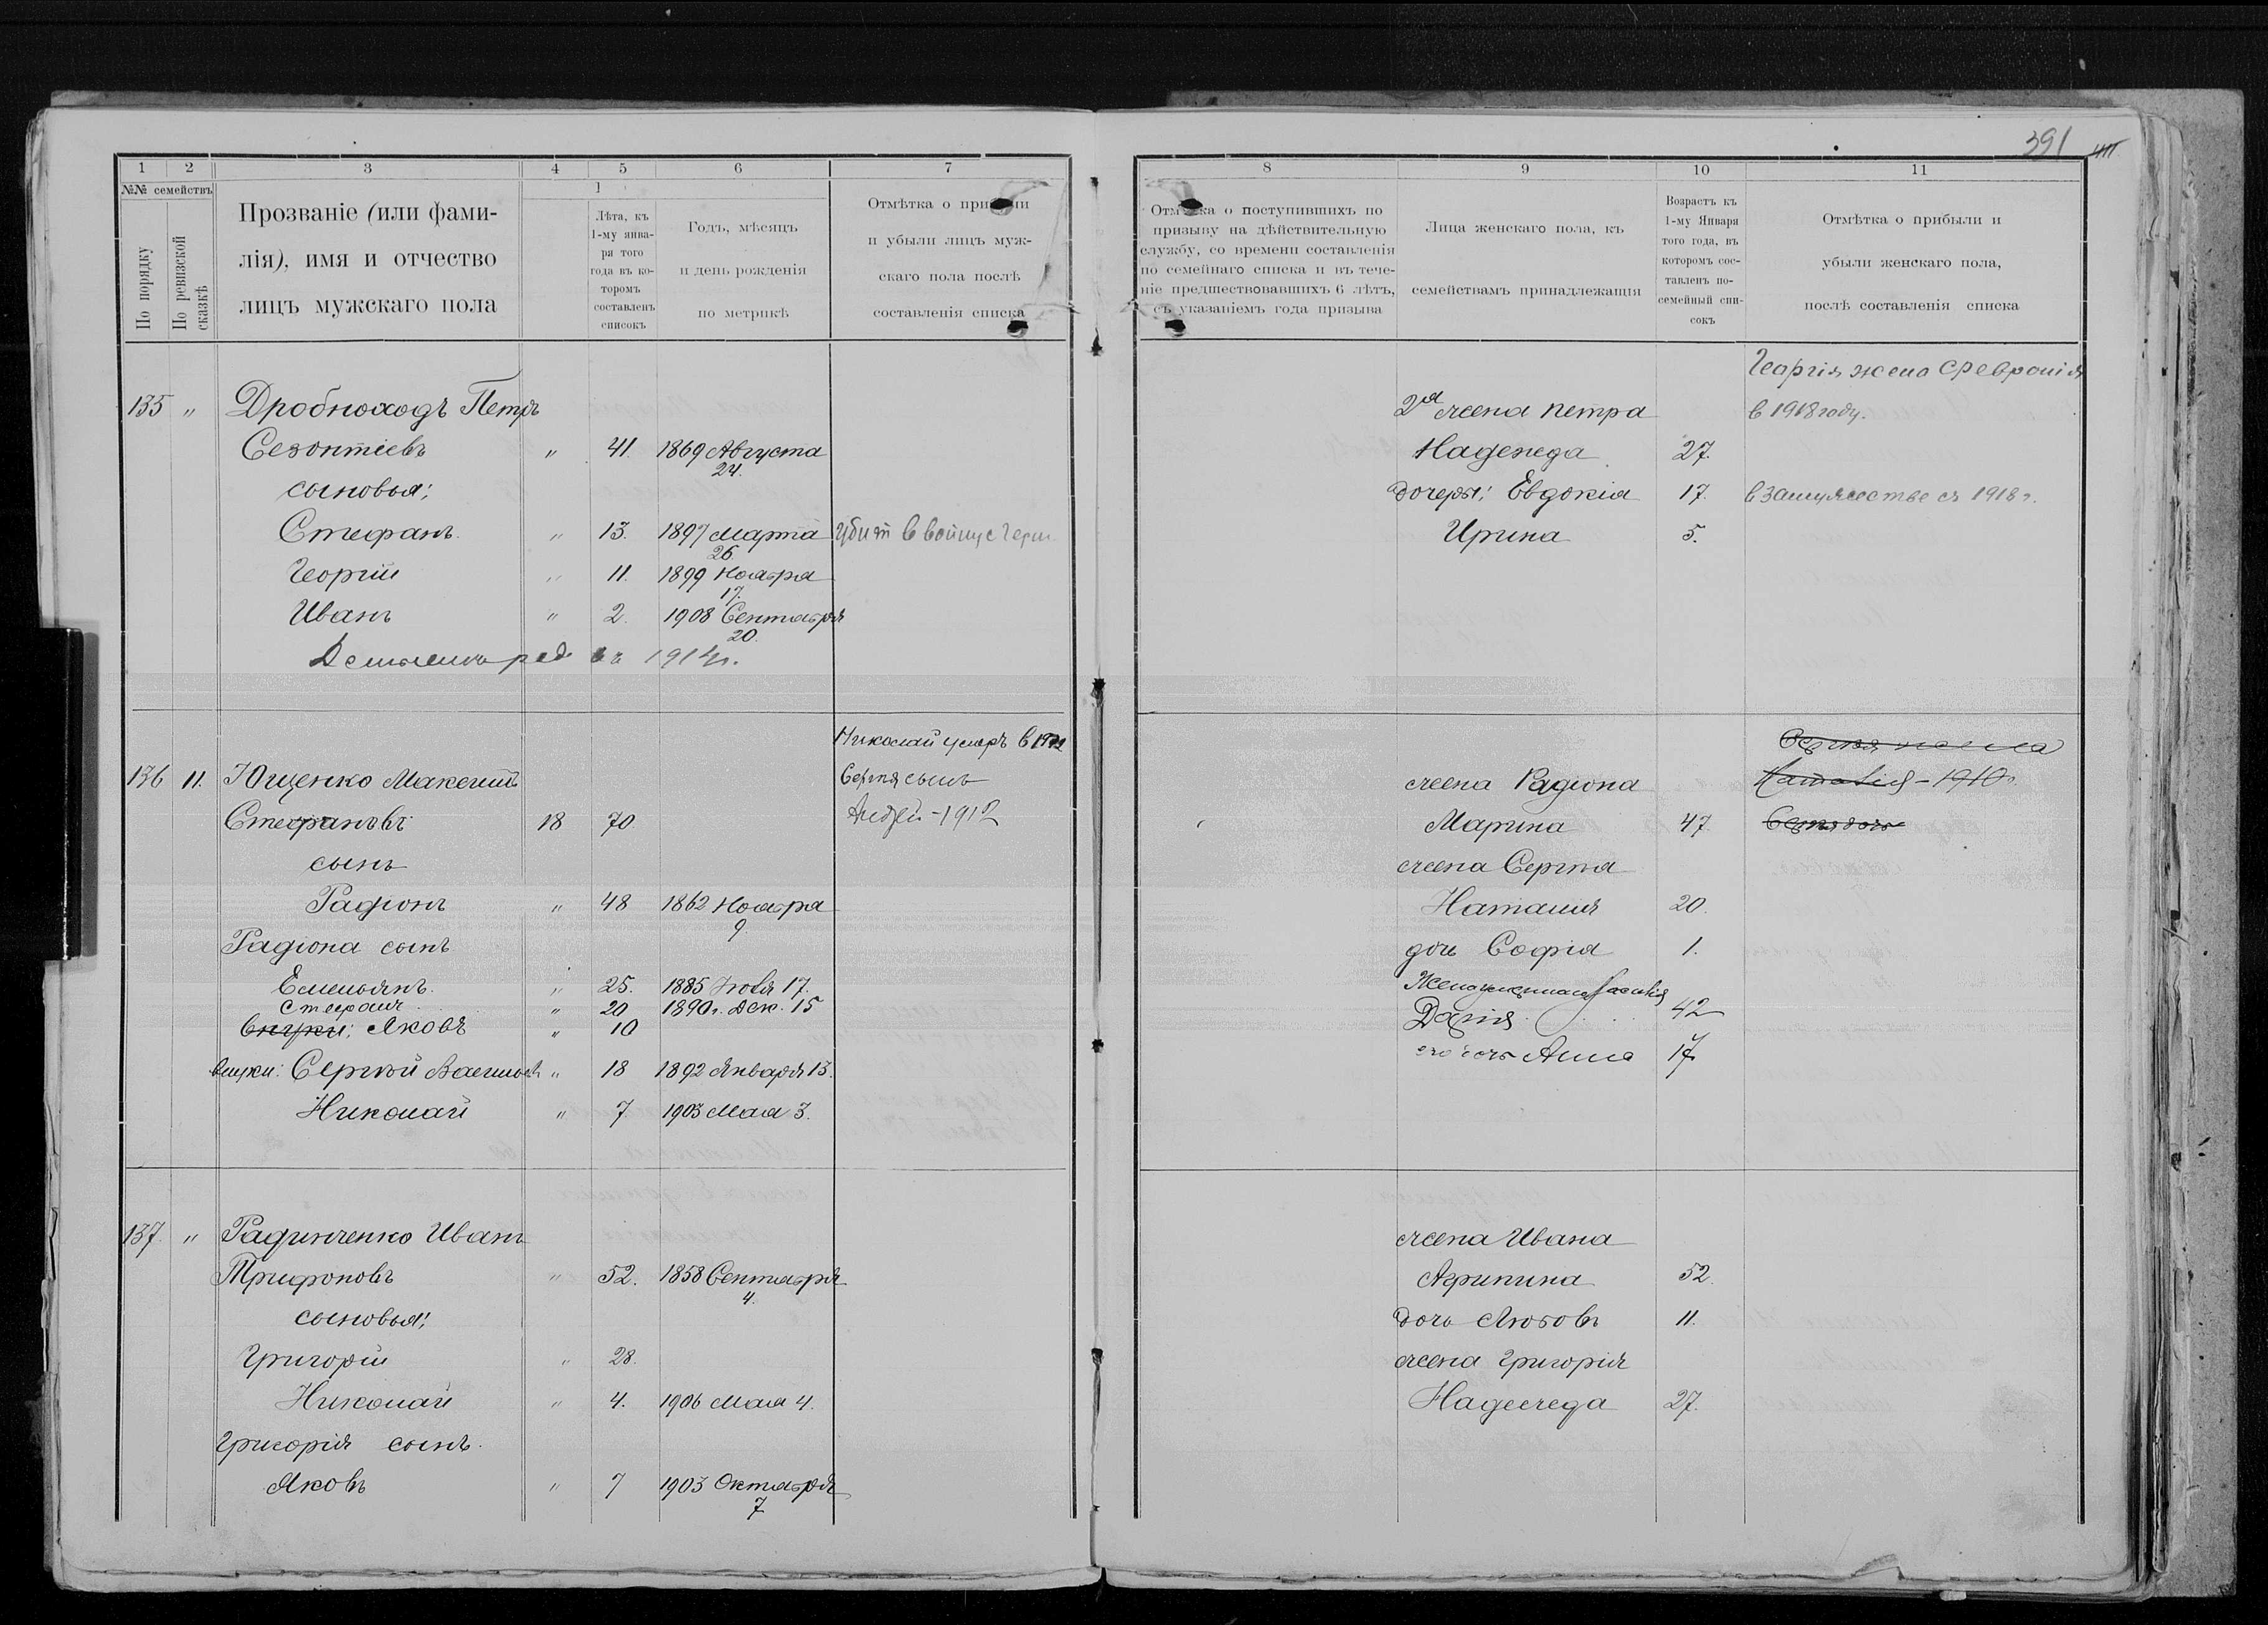 391
1 2 3 4 5 6 7
№№ семействъ
По порядку
По ревизской сказкѣ
Прозваніе (или фами-
лія), имя и отчество
лицъ мужскаго пола
Лѣта, къ
1-му янва-
ря того
года въ ко-
торомъ
составленъ
списокъ
Годъ, мѣсяцъ
и день рожденія
по метрикѣ
Отмѣтка о прибыли
и убыли лицъ муж-
скаго пола послѣ
составленія списка
135 " Дробноходъ Петръ
Сезонтіевъ " 41. 1869 Августа
24.
сыновья:
Стефанъ " 13. 1897 Марта убит в войну с герм.
26
Георгій " 11. 1899 Ноября
17.
Иванъ " 2. 1908 Сентября
20.
въ 1914 г.
Николай умеръ в
136 11. Ющенко Максимъ Сергѣя сынъ
Стефановъ 18 70 Андрей - 1912
сынъ
Радіонъ " 48 1862 Ноября
9
Радіона сынъ
Емельянъ " 25. 1885 Іюля 17.
Стефанъ " 20 1890 г. Дек. 15
Внуки: Яковъ " 10
внуки: Сергѣй Васильевъ " 18 1892 Января 13.
Николай " 7 1903 Мая 3.
137. " Радинченко Иванъ
Трифоновъ " 52. 1858 Сентября
4.
сыновья:
Григорій " 28.
Николай " 4. 1906 Мая 4.
Григорія сынъ.
Яковъ " 7 1903 Октября
7
8 9 10 11
Отмѣтка о поступившихъ по
призыву на дѣйствительную
службу, со времени составленія
по семейнаго списка и въ тече-
ніе предшествовавшихъ 6 лѣтъ,
съ указаніемъ года призыва
Лица женскаго пола, къ
семействамъ принадлежащія
Возрастъ къ
1-му Января
того года, въ
которомъ сос-
тавленъ по-
семейный спи-
сокъ
Отмѣтка о прибыли и
убыли женскаго пола,
послѣ составленія списка
Георгія жена Февронія
2я жена Петра в 1918 году.
Надежда 27.
дочери: Евдокія 17. в замужестве с 1918 г.
Ирина 5.
Сергѣя жена
жена Радіона Наталія - 1910 г.
Марина 47 Сергѣя дочь
жена Сергѣя
Наталія 20.
дочь Софія 1.
Жена Василія
Дарія 42
его дочь Анна 17
жена Ивана
Агрипина 52.
дочь Любовь 11.
жена Григорія
Надежда 27.